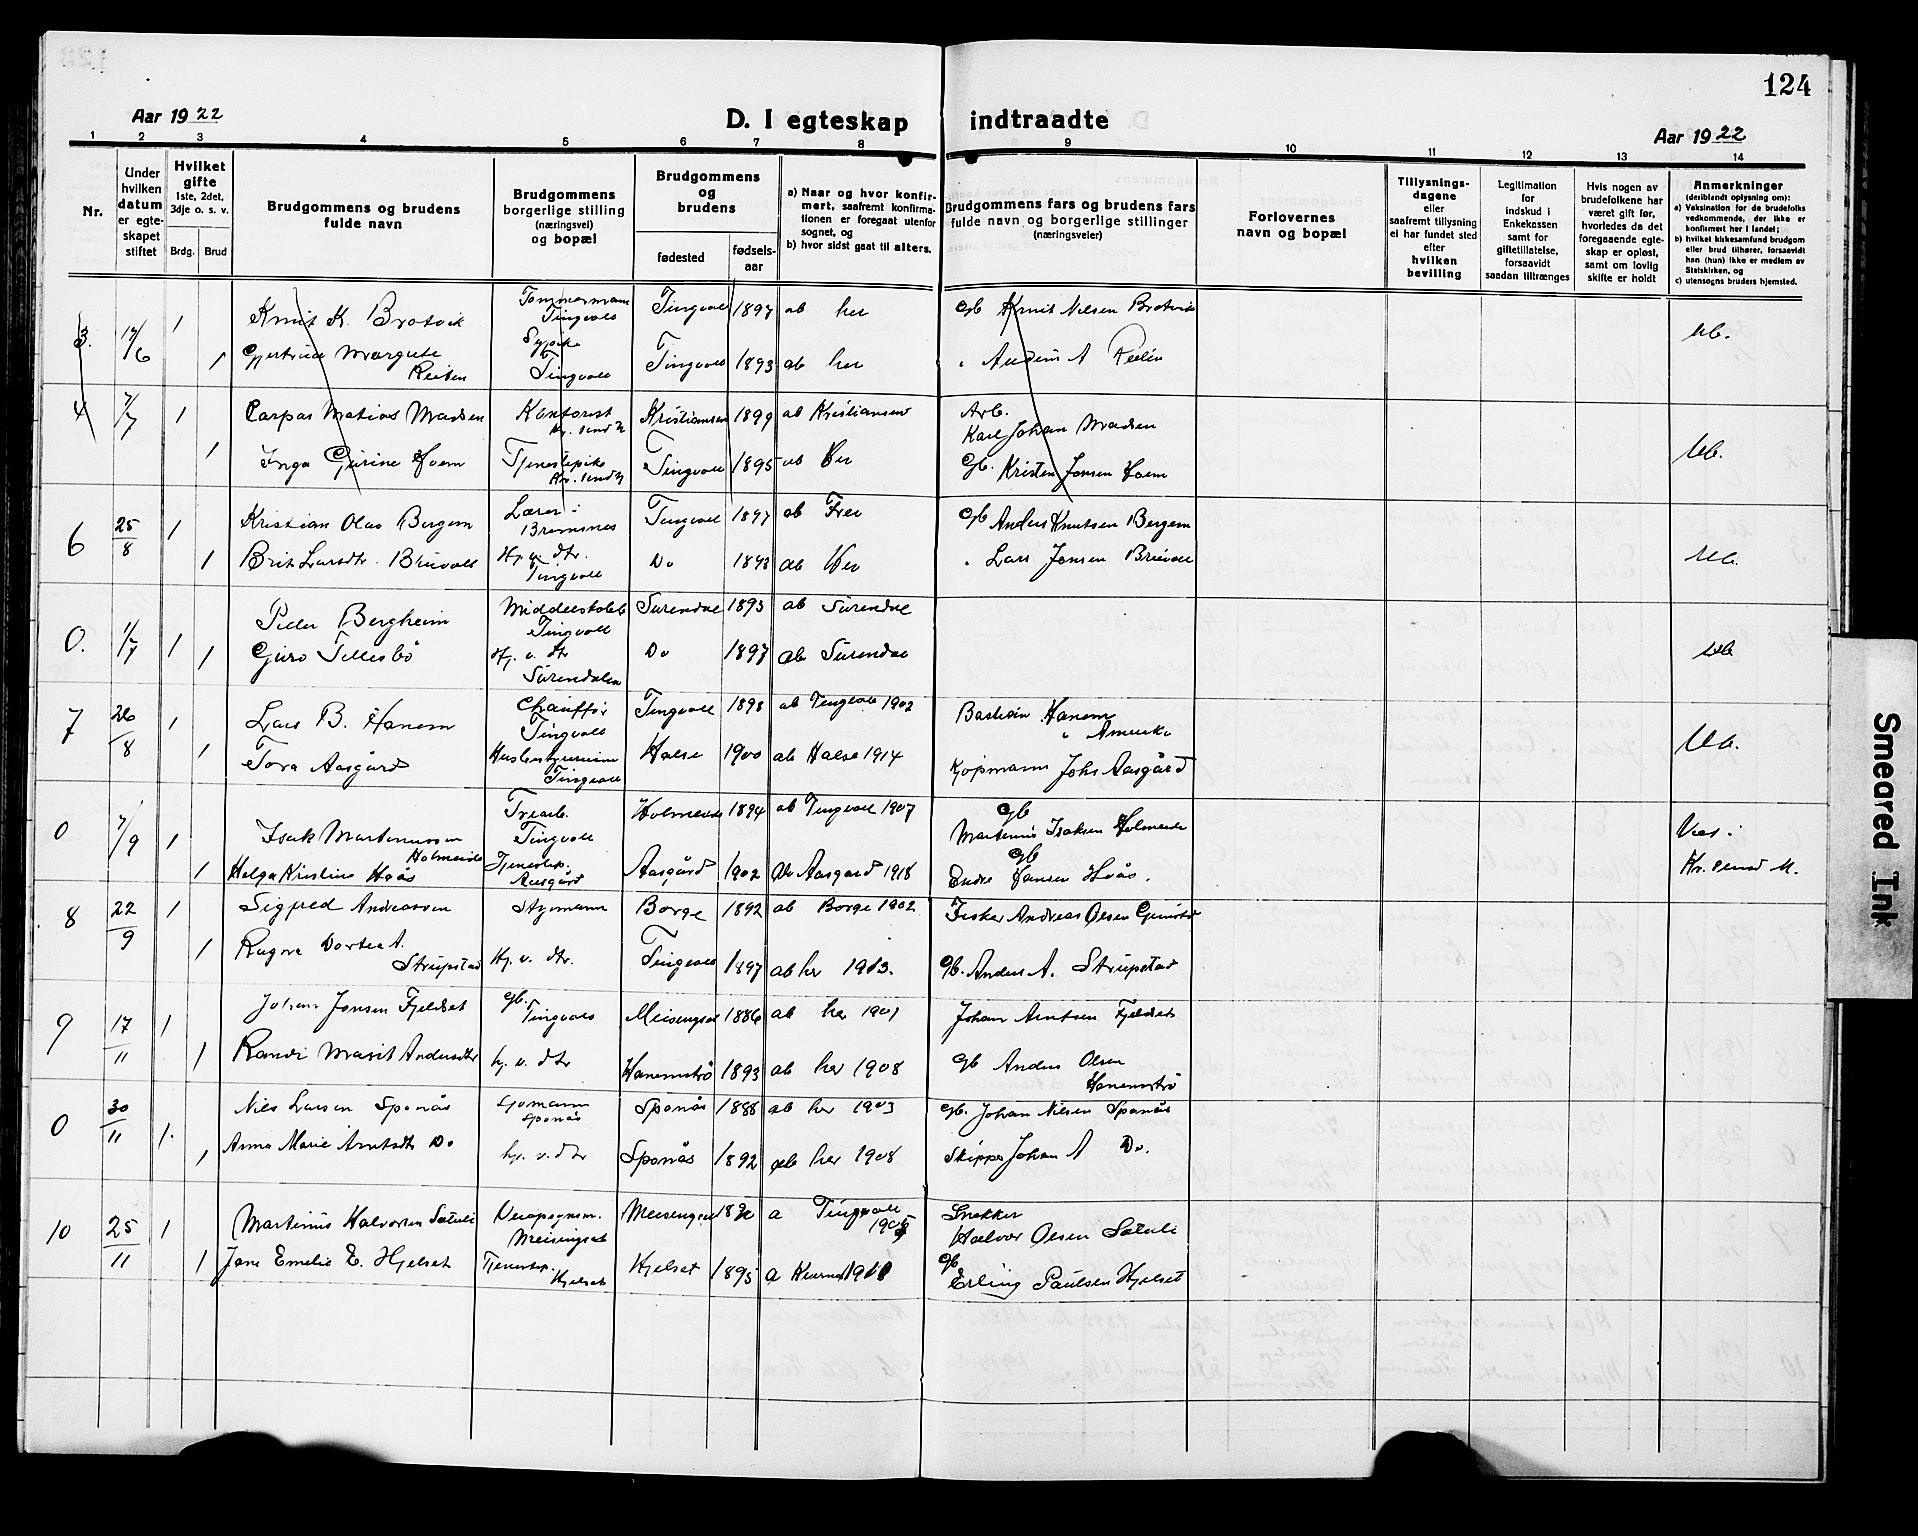 124
Aar 1922
D. I egteskap indtraadte
Aar 1922
1 2 3 4 5 6 7 8 9 10 11 12 13 14
Nr.
Under hvilken datum er egteskapet stiftet
Hvilket gifte
1ste, 2det, 3dje o. s. v.
Brdg. Brud
Brudgommens og brudens fulde navn
Brudgommens borgerlige stilling (næringsvei) og bopæl
Brudgommens og brudens
fødested
fødsels-aar
a) Naar og hvor konfirmert, saafremt konfirmationen er foregaat utenfor sognet, og
b) hvor sidst gaat til alters.
Brudgommens fars og brudens fars fulde navn og borgerlige stillinger (næringsveier)
Forlovernes navn og bopæl
Tillysnings-dagene eller saafremt tillysning ei har fundet sted efter hvilken bevilling
Legitimation for indskud i Enkekassen samt for giftetillatelse, forsaavidt saadan tiltrænges
Hvis nogen av brudefolkene har været gift før, hvorledes da det foregaaende egteskap er opløst, samt om lovlig skifte er holdt
Anmerkninger
(deriblandt oplysning om):
a) Vaksination for de brudefolks vedkommende, der ikke er konfirmert her i landet;
b) hvilket kirkesamfund brudgom eller brud tilhører, forsaavidt han (hun) ikke er medlem av Statskirken, og
c) utensogns bruders hjemsted.
3. 17/6 1 Knut K. Brotvik Tømmermann Tingvoll Tingvoll 1897 ab her Gb Knut Nilsen Brotvik
1 Gjertrud Margrete Reiten Sypike Tingvoll Tingvoll 1893 ab her
4 7/7 1 Caspar Matias Madsen Kontorist Kr. sund N Kristiansun 1899 ab Kristiansund Arb. Karl Johan Madsen
1 Inga Gurine Hoem Tjenestepike Kr. sund N Tingvoll 1895 ab Her Gb. Kristen Jonsen Hoem
6 25/8 1 Kristian Olav Bergem Lærer i Bremsnes Tingvoll 1897 ab Frei Gb Anders Knutsen Bergem
1 Brit Larsdtr. Bruvoll Hj. v. dtr. Tingvoll Do 1898 ab Her " Lars Jonsen Bruvoll
0. 1/7 1 Peder Bergheim Middelskoleb Tingvoll Surendal 1893 ab Surendal
1 Guro Tellesbø Hj. v. dtr Surendalen Do 1897 ab Surendal
7 26/8 1 Lars B. Hanem Chauffør Tingvoll Tingvoll 1898 ab Tingvoll 1902 Bastian Hanem i Amerika
1 Tora Aasgård Husbestyrerinne Tingvoll Halse 1900 ab Halse 1914 Kjøpmann Johs Aasgård
0 7/9 1 Isak Martinussen Holmeide Trearb. Tingvoll Holmeide 1894 ab Tingvoll 1907 Gb Martinus Isaksen Holmeide
1 Helga Kristine Hoås Tjenestep. Aasgård Aasgård 1902 ab Aasgard 1918 Gb Endre Hansen Hoås. Kr. sund N.
8 22/9 1 Sigfred Andreassen Styrmann Borge 1892 ab Borge 1902 Fisker Andreas Olsen
1 Ragna Dortea A. Strupstad Hj. v. dtr. Tingvoll 1897 ab her 1913. Gb. Anders A. Strupstad
9 17/11 1 Johan Jonsen Fjeldset Gb. Tingvoll Meisingset 1886 ab her 1901 Johan Arntsen Fjeldset
1 Randi Marit Andersdtr hj. v. dtr Hanemstrø 1893 ab her 1908 Gb Anders Olsen Hanemstrø
0 30/11 1. Nils Larsen Sponås Sjømann Sponås Sponås 1888 ab her 1903 Gb. Johan Nilsen Sponås
1 Anna Marie Arntsdtr Do hj. v. dtr Sponås 1892 ab her 1908 Skipper Johan A Do.
10 25/11 1 Martinus Halvorsen Meisingset Meisingset a Tingvoll Snekker Halvor Olsen
1 Jane Emelie E. Hjelset Tjenestep. Hjelset Hjelset 1895 a Gb Erling Paulsen Hjelset
Smeared Ink